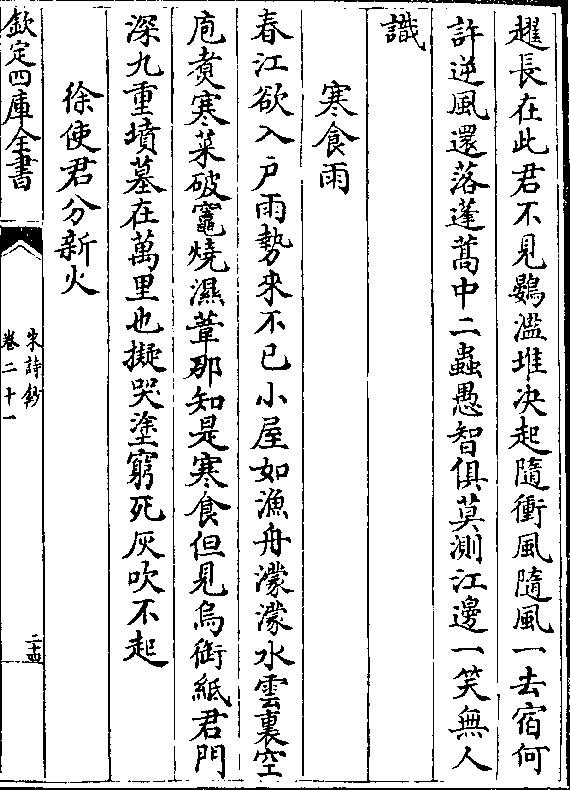 趯長在此君不見鷃濫堆決起隨衝風隨風一去宿何
許逆風還落蓬蒿中二蟲愚智俱莫測江邊一笑無人
識
寒食雨
春江欲入户雨勢來不已小屋如漁舟濛濛水雲裏空
庖煑寒菜破竈燒濕葦那知是寒食但見烏銜紙君門
深九重墳墓在萬里也擬哭塗窮死灰吹不起
徐使君分新火
欽定四庫全書
宋詩鈔
卷二十一
二十四